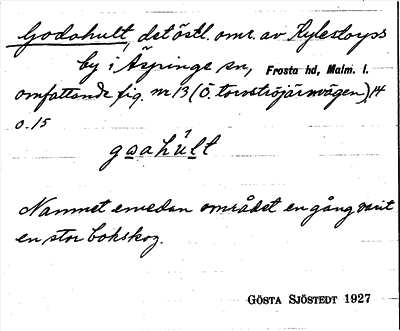 Godahult, det östl. omr. av Kylestorps
by i Äspinge sn, Frosta hd, Malm. l.
omfattande fig. nr 13 (Ö. torvströjärnvägen), 14
o. 15
goahult
Namnet emedan området en gång varit
en stor bokskog.
GÖSTA SJÖSTEDT 1927